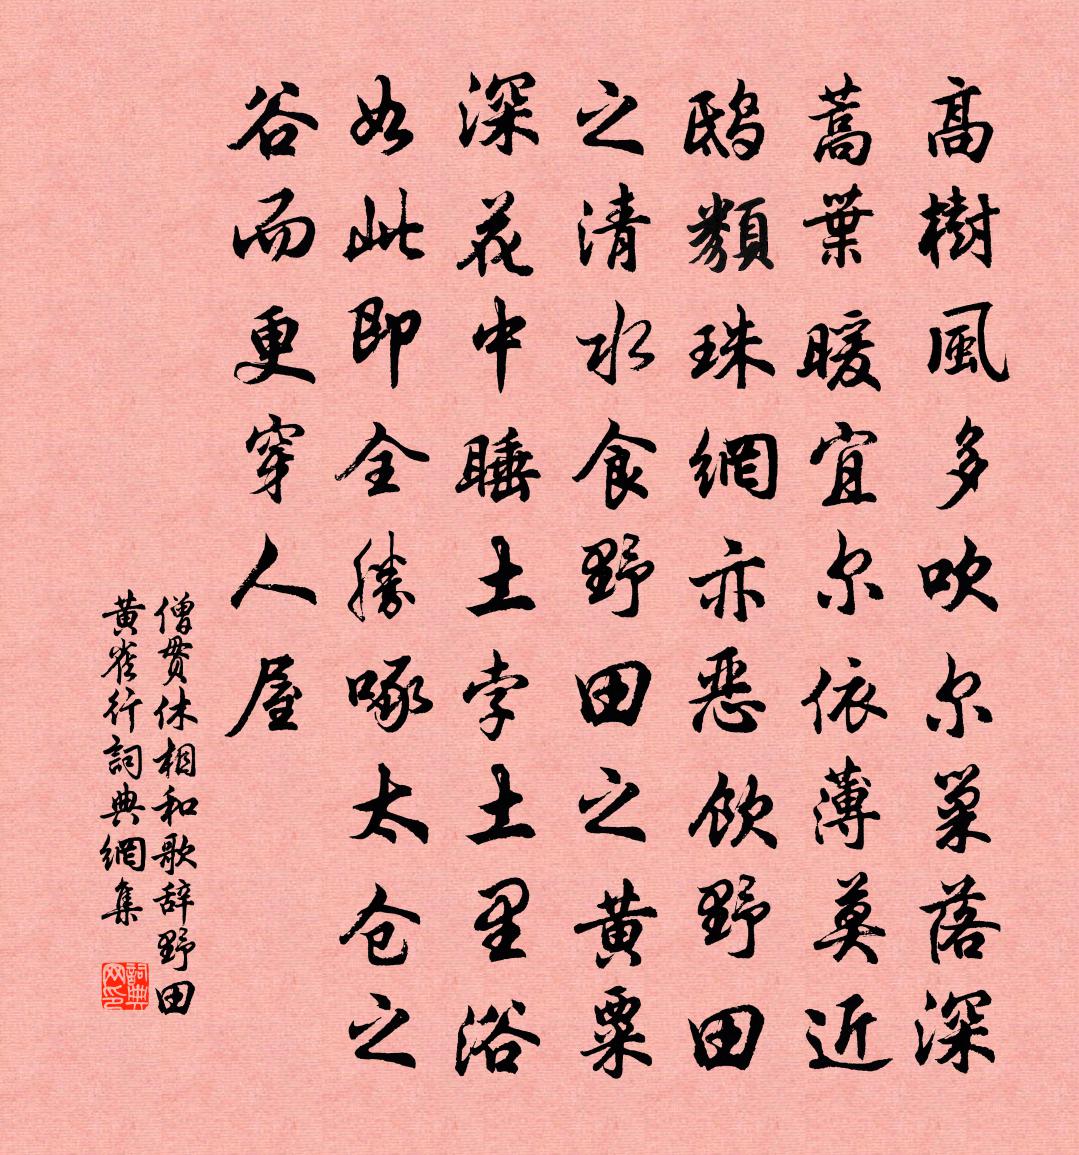 高樹風多吹尔巢落深
蒿葉暖宜尔依薄莫近
鴟類珠網亦恶飲野田
之清水食野田之黄粟
深花中睡土孛土里浴
如此即全勝啄太仓之
谷而更穿人屋
僧贯休相和歌辞野田
黄雀行詞典網集
詞典网印